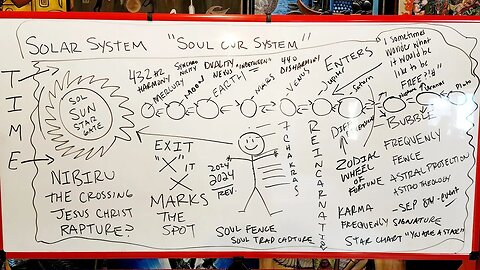 SOLAR SYSTEM "SOUL CUR SYSTEM"
I SOMETIMES
WONDER WHAT
IT WOULD BE
LIKE TO BE
FREE?!@"
TIME
SOL
SUN
STAR
GATE
432 HZ
HARMONY
MERCURY
MOON
DUALITY
VENUS
EARTH
MARS
440
DISHARMONY
VENUS
ENTERS
JUPITER
SATURN
URANUS
PLUTO
EXIT
"X" IT
X
MARKS
THE
SPOT
NIBIRU
THE CROSSING
JESUS CHRIST
RAPTURE?
2024
2024
REV.
7 CHAKRAS
REINCARNATION
SOUL FENCE
SOUL TRAP CAPTURE
ZODIAL
WHEEL OF
FORTUNE
KARMA
FREQUENCY SIGNATURE
STAR CHART "YOU ARE A STAR"
BUBBLE
FREQUENCY
FENCE
ASTRAL PROJECTION
ASTROTHEOLOGY
-SEP 8TH-EVENT